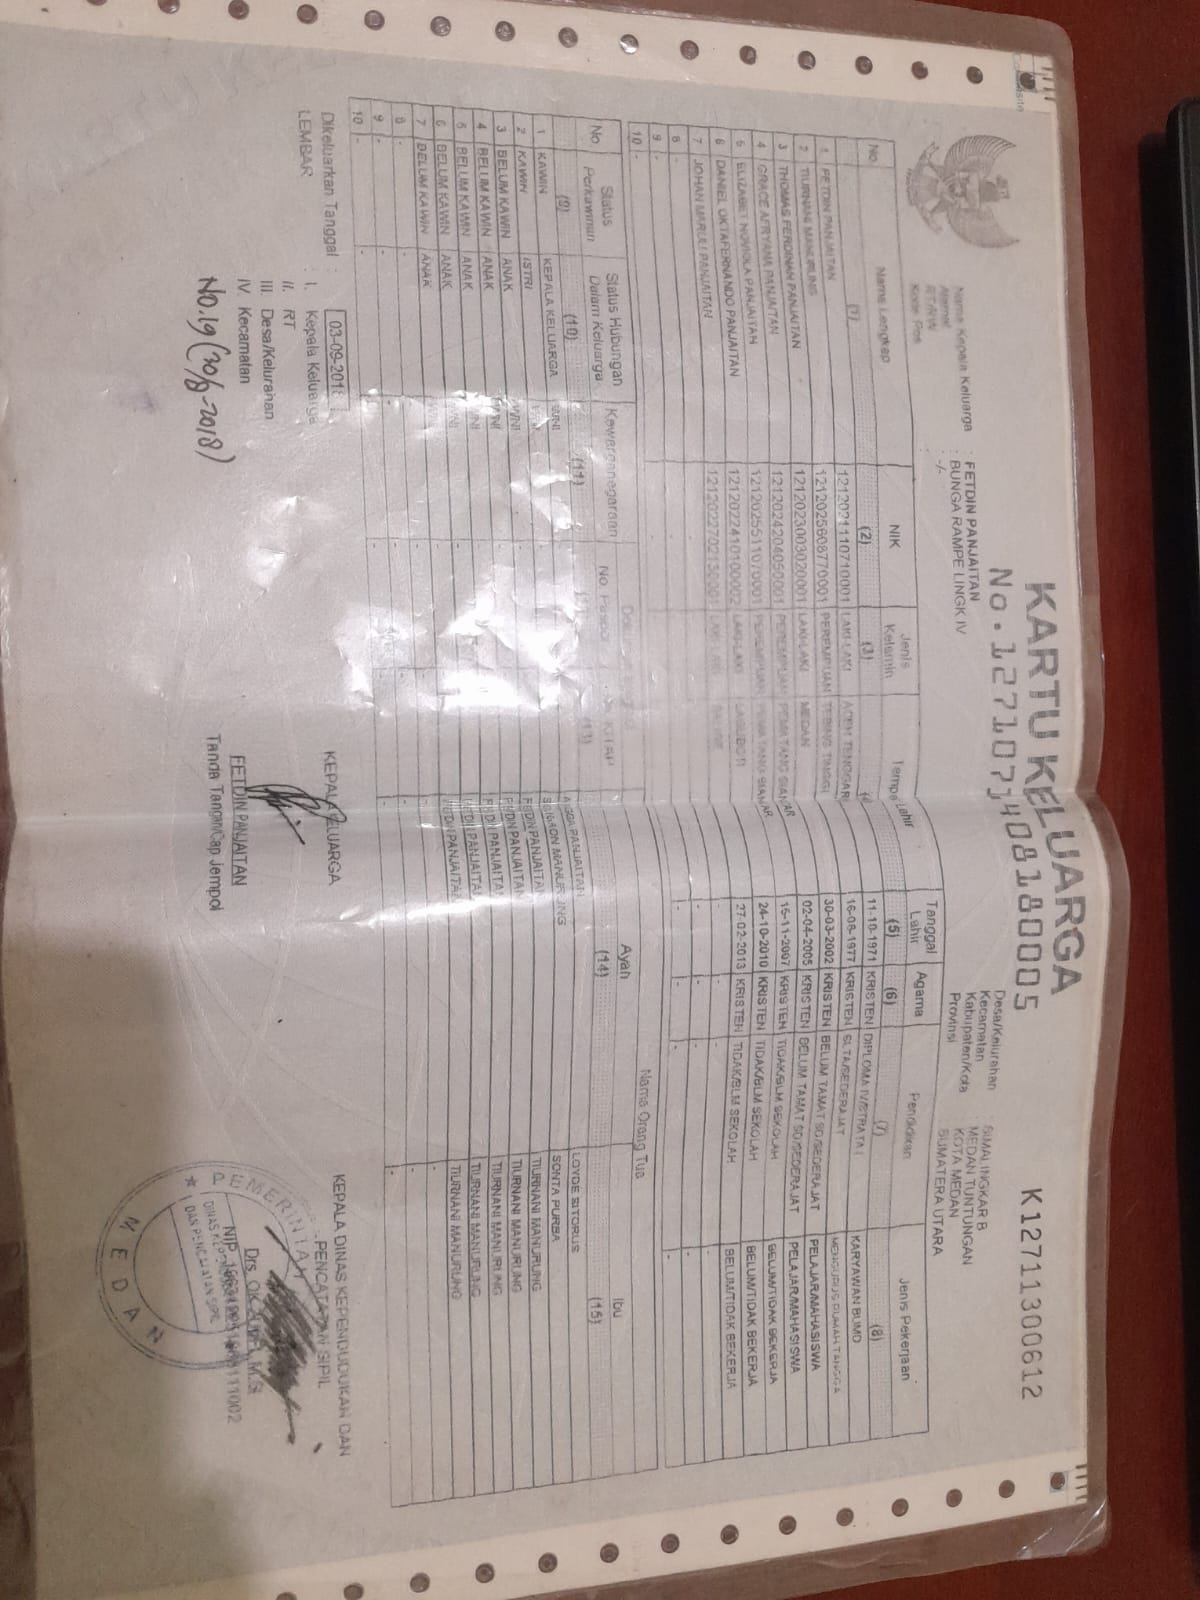 KARTU KELUARGA
No.1271071408180005
K12711300612
Nama Kepala Keluarga : FETDIN PANJAITAN
Alamat : BUNGA RAMPE LINGK IV
RT/RW : -/-
Kode Pos :
Desa/Kelurahan : SIMALINGKAR B
Kecamatan : MEDAN TUNTUNGAN
Kabupaten/Kota : KOTA MEDAN
Provinsi : SUMATERA UTARA
No Nama Lengkap NIK Jenis Kelamin Tempat Lahir Tanggal Lahir Agama Pendidikan Jenis Pekerjaan
(1) (2) (3) (5) (6) (7) (8)
1 FETDIN PANJAITAN 1212021110710001 LAKI-LAKI ACEH TENGGARA 11-10-1971 KRISTEN DIPLOMA IV/STRATA I KARYAWAN BUMD
2 TIURNANI MANURUNG 1212025608770001 PEREMPUAN TEBING TINGGI 16-08-1977 KRISTEN SLTA/SEDERAJAT MENGURUS RUMAH TANGGA
3 THOMAS FERDINAN PANJAITAN 1212023003020001 LAKI-LAKI MEDAN 30-03-2002 KRISTEN BELUM TAMAT SD/SEDERAJAT PELAJAR/MAHASISWA
4 GRACE AFRYANA PANJAITAN 1212024204050001 PEREMPUAN PEMATANG SIANTAR 02-04-2005 KRISTEN BELUM TAMAT SD/SEDERAJAT PELAJAR/MAHASISWA
5 ELIZABET NOVIOLA PANJAITAN 1212025511070001 PEREMPUAN PEMATANG SIANTAR 15-11-2007 KRISTEN TIDAK/BLM SEKOLAH BELUM/TIDAK BEKERJA
6 DANIEL OKTAFERNANDO PANJAITAN 1212022410100002 LAKI-LAKI LAGUBOTI 24-10-2010 KRISTEN TIDAK/BLM SEKOLAH BELUM/TIDAK BEKERJA
7 JOHAN MARULI PANJAITAN 1212022702130001 LAKI-LAKI 27-02-2013 KRISTEN TIDAK/BLM SEKOLAH BELUM/TIDAK BEKERJA
8 -
9 -
10 -
No Status Perkawinan Status Hubungan Dalam Keluarga Kewarganegaraan No. Paspor KITAP Nama Orang Tua
Ayah Ibu
(9) (10) (11) (13) (14) (15)
1 KAWIN KEPALA KELUARGA WNI - ANGGA PANJAITAN LOYDE SITORUS
2 KAWIN ISTRI WNI - MANURUNG SONTA PURBA
3 BELUM KAWIN ANAK WNI - FETDIN PANJAITAN TIURNANI MANURUNG
4 BELUM KAWIN ANAK WNI - FETDIN PANJAITAN TIURNANI MANURUNG
5 BELUM KAWIN ANAK WNI - FETDIN PANJAITAN TIURNANI MANURUNG
6 BELUM KAWIN ANAK WNI - FETDIN PANJAITAN TIURNANI MANURUNG
7 BELUM KAWIN ANAK WNI - FETDIN PANJAITAN TIURNANI MANURUNG
8 -
9 -
10 -
Dikeluarkan Tanggal : 03-09-2018
LEMBAR : I. Kepala Keluarga
II. RT
III. Desa/Kelurahan
IV. Kecamatan
No.19 (30/8-2018)
KEPALA KELUARGA
FETDIN PANJAITAN
Tanda Tangan/Cap Jempol
KEPALA DINAS KEPENDUDUKAN DAN
PENCATATAN SIPIL
NIP.
PEMERINTAH
DINAS KEPENDUDUKAN
DAN PENCATATAN SIPIL
MEDAN